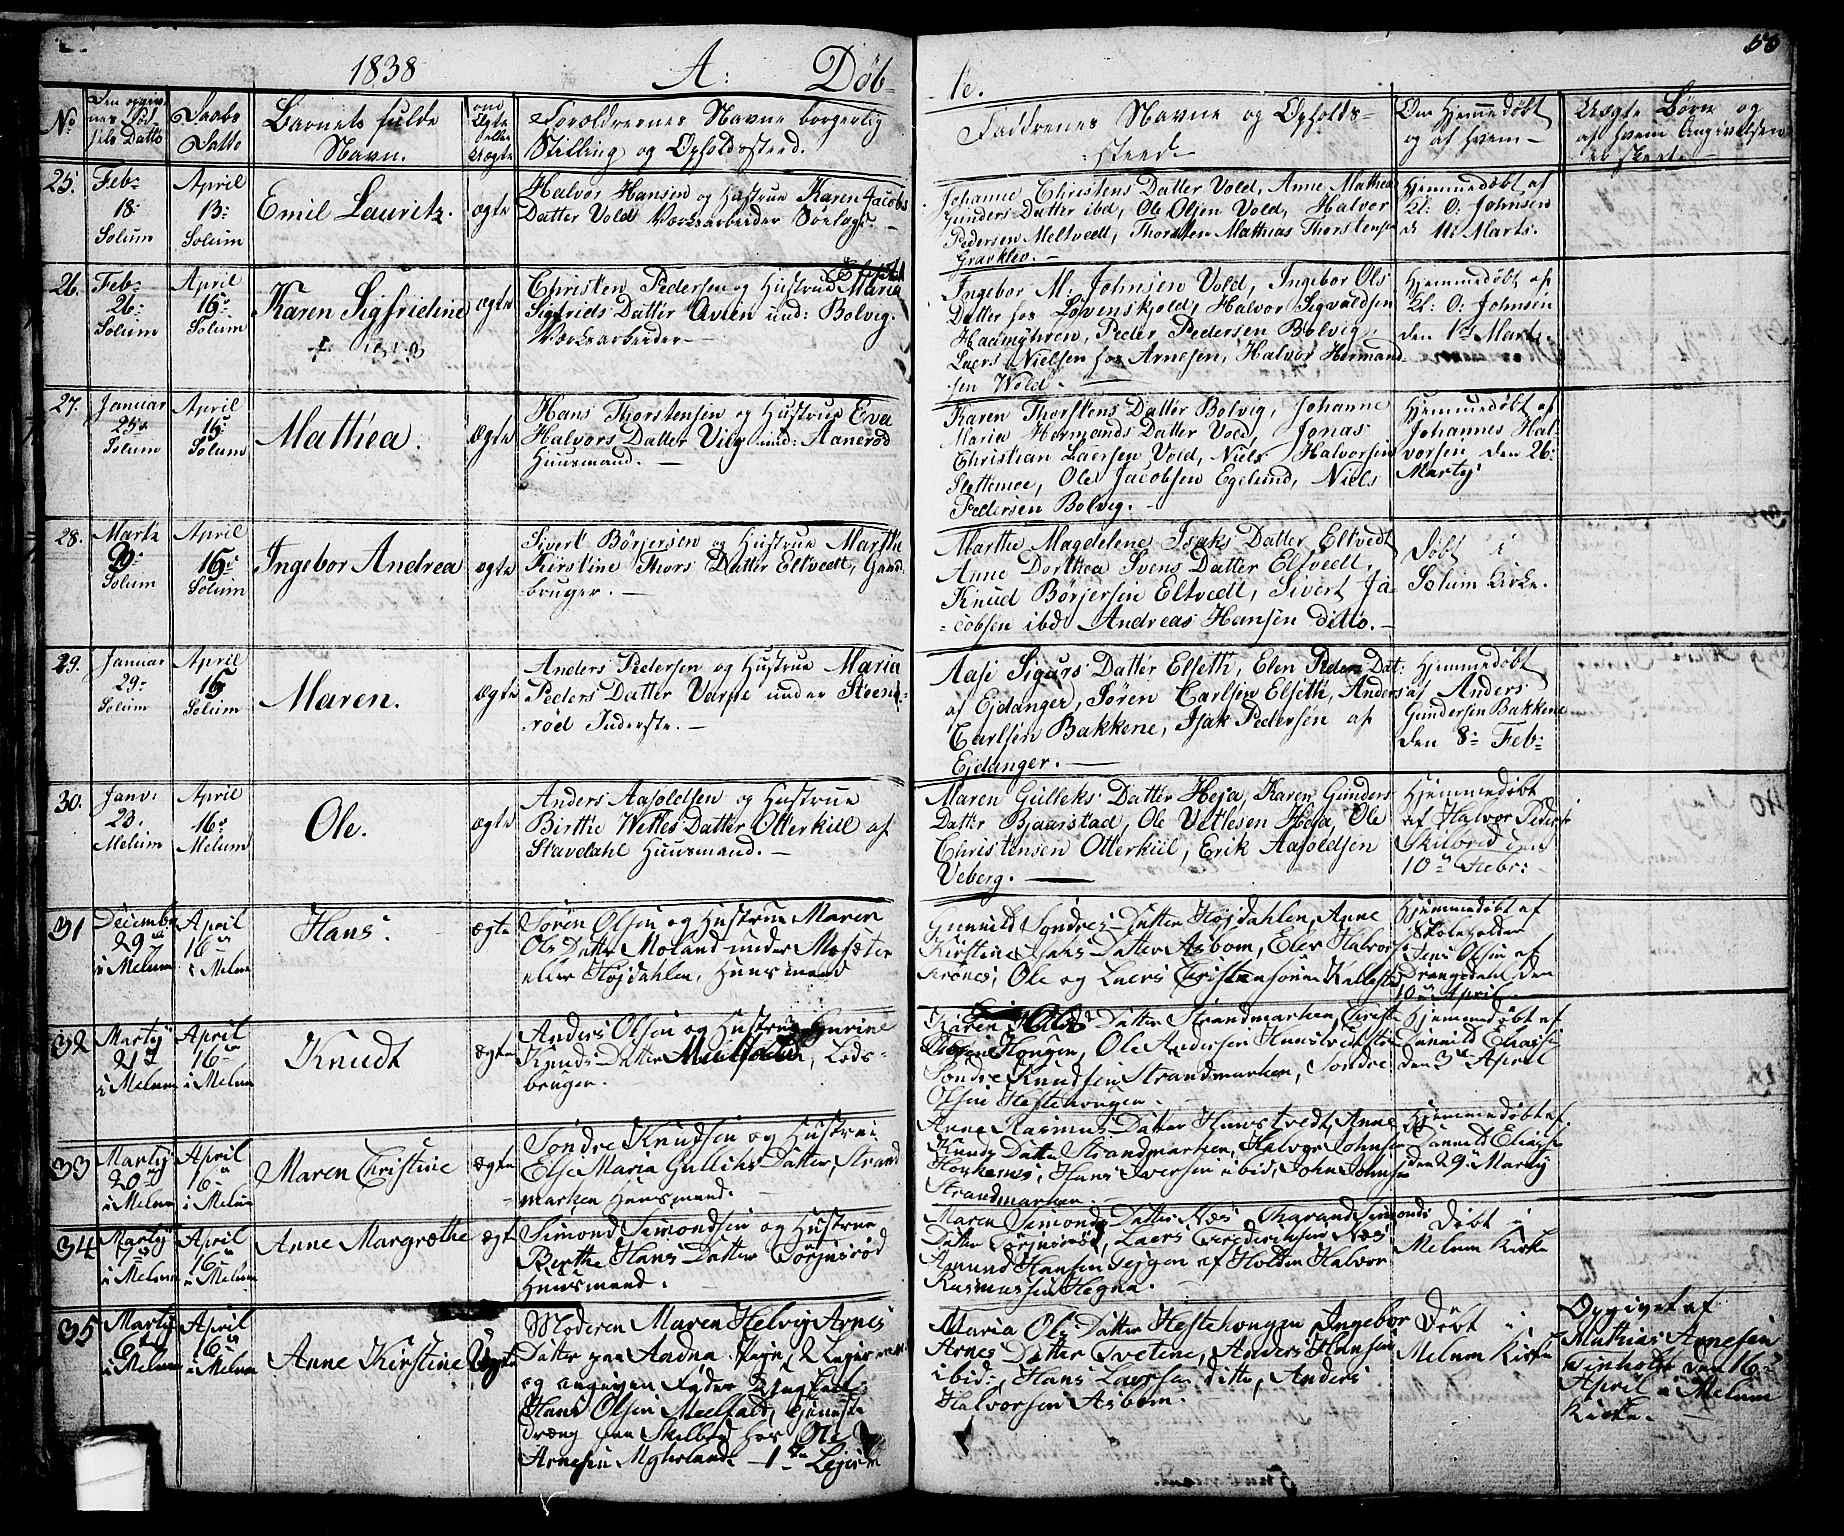 1838 A: Døb-
te.
No
Den opgivne Fødsels Datto
Daabs Datto
Barnets fulde Navn.
om Ægte eller Uægte
Forældrenes Navne borgerlig
Stilling og Opholdssted.
Faddrenes Navne og Opholds-
sted
Om Hjemmedøbt
og af hvem
Uægte Børn og
af hvem Angivelsen
er skeet.
25.
Feb:
18:
Solum
April
13:
Solum
Emil Lauritz.
ægte
Halvor Hansen og Hustrue Karen Jacobs
Datter Vold Værksarbeider
Johanne Christens Datter Vold, Anne Mathea
Gunders Datter ibd, Ole Olsen Vold, Halvor
Pedersen Meltvedt, Thorsten Mathias Thorstensen
Graaklev.
Hjemmedøbt af
Kl: O: Johnsen
d 11: Marts.
26.
Feb:
26:
Solum
April
16:
Solum
Karen Sigfridine
ægte
Christen Pedersen og Hustrue Maria
Sigfrids Datter und: Bolvig.
Værksarbeider
Ingebor M: Johnsen Vold, Ingebor Ols
Datter fra Løvenskjold, Halvor Sigvaldsen
Haamyhren, Peder Pedersen Bolvig,
Laers Nielsen for Arnesen, Halvor Hermand-
sen Wold.
Hjemmedøbt af
Kl: O: Johnsen
den 1ste Marts.
27.
Januar
25:
Solum
April
15:
Solum
Mathea.
ægte
Hans Thorstensen og Hustrue Eva
Halvors Datter Vig und: Aanerød
Huusmand.
Karen Thorstens Datter Bolvig, Johanne
Maria Hermands Datter Vold, Jonas
Christian Laersen Vold, Niels Halvorsen
Slettemoe, Ole Jacobsen Egelund, Niels
Pedersen Bolvig.
Hjemmedøbt af
Johannes Hal-
vorsen den 26:
Martij
28.
Marts
Solum
April
15:
Solum
Ingebor Andrea
ægte
Sivert Børjersen og Hustrue Marthe
Kirstine Thors Datter Eltvedt, Gaard-
bruger.
Marthe Magdelene Isaks Datter Eltvedt
Anne Dorthea Svens Datter Eltvedt,
Knud Børjersen Eltvedt, Sivert Ja-
cobsen ibd Andreas Hansen ditto.
Døbt i
Solum Kirke.
29.
Januar
29:
Solum
April
15
Solum
Maren.
ægte
Anders Pedersen og Hustrue Maria
Peders Datter under Steens-
rød Inderste.
Aase Sigurs Datter Elseth, Elen Peders Dat:
af Ejdanger, Søren Carlsen Elseth, Anders
Carlsen Bakkene, Isak Pedersen af
Ejdanger.
Hjemmedøbt
af Anders
Gundersen Bakkene
den 8: Feb:
30.
Janv:
23.
Melum
April
16:
Melum
Ole.
ægte
Anders Aasoldsen og Hustrue
Birthe Wetles Datter Otterkiil af
Stavdahl Huusmand.
Maren Gulleks Datter Heja, Karen Gunders
Datter Bjaarstad, Ole Vetlesen Heja, Ole
Christensen Otterkiil, Erik Aasoldsen
Veberg.
Hjemmedøbt
af Halvor Peders:
Skilbred den
10: Febr:
31
Decembr
29
i Melum
April
16
i Melum
Hans.
ægte
Søren Olsen og Hustrue Maren
Ols Datter Moland under Mosæter
eller Højdahlen, Huusmand
Gunnild Søndres Datter Højdahlen, Anne
Kirstine Isaks Datter Asbom, Elev Halvors:
Ole og Laers Christensønner
Hjemmedøbt af
Skoleholder
Jens Olsen af
Drangedahl den
10 April
32
Martij
21
i Melum
April
16
i Melum
Knudt
ægte
Anders Olsen og Hustrue
Knuds Datter, Leds-
bruger.
Karen Datter Strandmarken,
Ole Andersen
Søndre Knudsen Strandmarken, Søndre
Olsen Hestehougen.
Hjemmedøbt af
Gunnild Eliasd:
den 3 April
33
Martij
20
i Melum
April
16
i Melum
Maren Christine
ægte
Søndre Knudsen og Hustrue
Else Maria Gulliks Datter, Strand
marken Huusmand.
Anne Rasmus Datter, Anne
Knuds Datter Strandmarken, Halvor Johnsen
Hans Iversen ibid, John Johnsen
Strandmarken.
Hjemmedøbt af
Gunnild Eliasd:
den 29 Martij
34
Martij
7
i Melum
April
16
i Melum
Anne Margrethe
ægte
Simond Simondsen og Hustrue
Berthe Hans Datter
Huusmand.
Maren Simonds Datter Næs
Datter, Laers Frederichsen Næs
Amund Hansen af Holden Halvor
Rasmussen Hegna.
Døbt i
Melum Kirke
35
Martij
6
i Melum
April
16
i Melum
Anne Kirstine
Uægte
Moderen Maren Helvig Arnes
Datter paa
og angiven Fader Ungkarl
Hans Olsen, tjeneste
Dreng paa Skilbred hos Ole
Arnesen
Maria Ols Datter Hestehougen Ingebor
Arnes Datter, Anders Hansen
ibid:, Hans Laersen ditto, Anders
Halvorsen Asbom.
Døbt i
Melum Kirke
Opgivet af
Mathias Arnesen
den 16
April i Melum
Kirke.